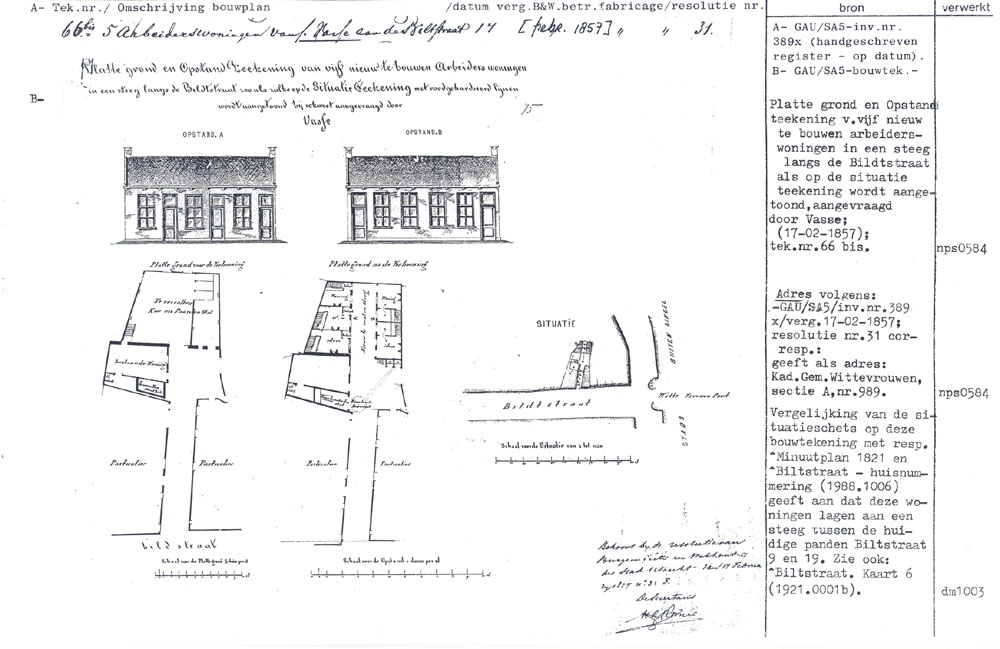 A- Tek.nr./ Omschrijving bouwplan /datum verg.B&W.betr.fabricage/resolutie nr.
66bis 5 Arbeiderswoningen van f. Vasse aan de Biltstraat 17 [febr. 1857] „ „ 31.
B-
Platte grond en Opstand Teekening van vijf nieuw te bouwen Arbeiders woningen
in een steeg langs de Bildtstraat zoo als zulks op de Situatie Teekening met roodgekardeerd lijnen
wordt aangetoond bij rekwest aangevraagd door
Vasse
75
OPSTAND. A
OPSTAND. B
Platte grond voor de Verbouwing
Platte grond na de Verbouwing
Bestaande Woning
Particulier
Particulier
Particulier
Particulier
SITUATIE
Bildtstraat
Witte Vrouwen Poort
BUITEN SINGEL
STADS
Schaal van de Situatie van 1 tot
Behoort bij de resolutie van
Burgemeester en Wethouders
der Stad Utrecht
De Secretaris
bron
verwerkt
A- GAU/SA5-inv.nr.
389x (handgeschreven
register - op datum).
B- GAU/SA5-bouwtek.-
Platte grond en Opstand
teekening v.vijf nieuw
te bouwen arbeiders-
woningen in een steeg
langs de Bildtstraat
als op de situatie
teekening wordt aange-
toond,aangevraagd
door Vasse;
(17-02-1857);
tek.nr.66 bis.
nps0584
Adres volgens:
-GAU/SA5/inv.nr.389
x/verg.17-02-1857;
resolutie nr.31 cor-
resp.:
geeft als adres:
Kad.Gem.Wittevrouwen,
sectie A,nr.989.
nps0584
Vergelijking van de si-
tuatieschets op deze
bouwtekening met resp.
^Minuutplan 1821 en
^Biltstraat - huisnum-
mering (1988.1006)
geeft aan dat deze wo-
ningen lagen aan een
steeg tussen de hui-
dige panden Biltstraat
9 en 19. Zie ook:
^Biltstraat. Kaart 6
(1921.0001b).
dm1003